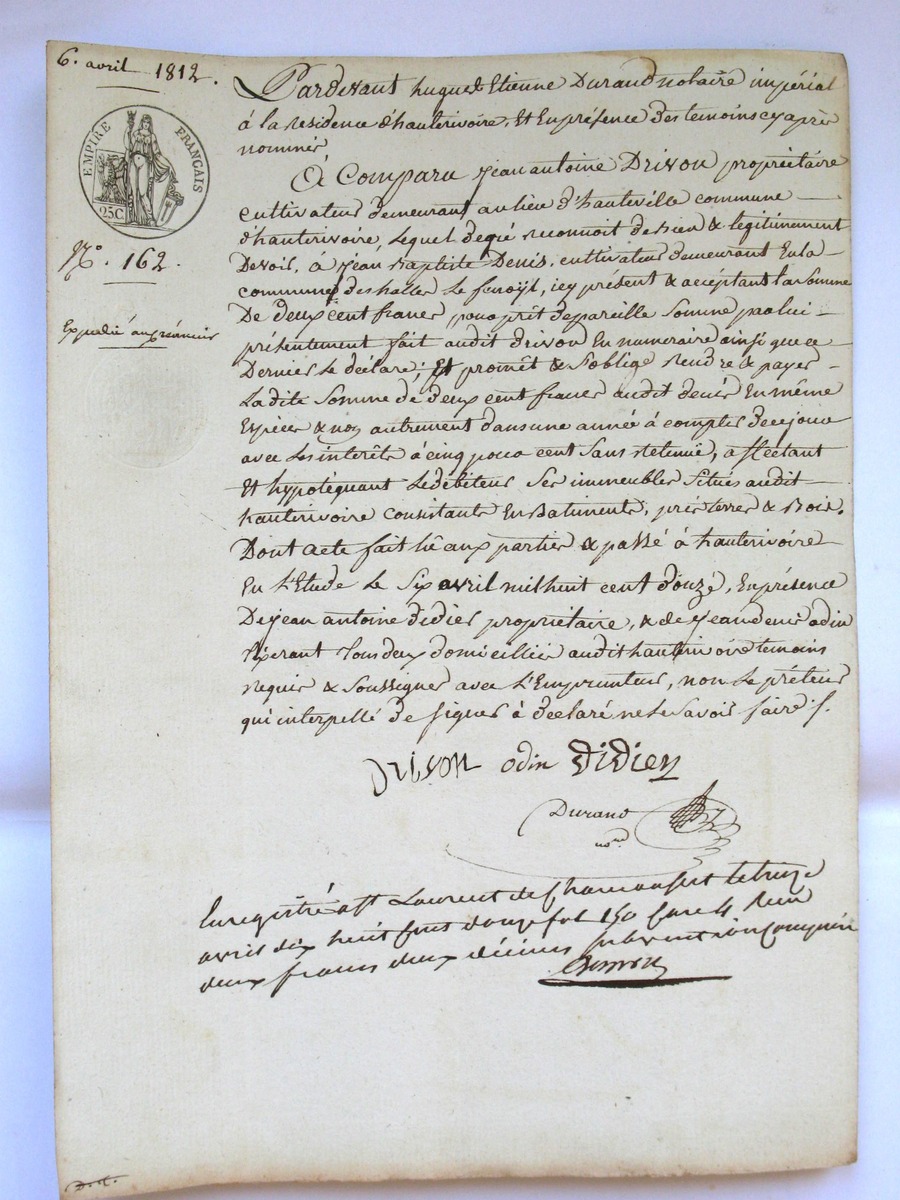 6. avril 1812.
EMPIRE FRANÇAIS
25C.
N.o 162.
Expedié au créancier
Pardevant hugues Etienne Durand notaire impérial
à la residence d'hauterivoire, Et En présence des temoins cy après
nommés
A Comparu jean antoine Drivon propriétaire
cultivateur demeurant au lieu d'hauteville commune
d'hauterivoire, lequel de gré reconnoit de bien & légitimement
Devoir, à jean Baptiste Denis, cultivateur demeurant En la
commune des halles le, icy présent & acceptant la Somme
De deux cent francs, pour prêt de pareille Somme par lui
présentement fait audit Drivon En numeraire ainsi que ce
Dernier le déclare; Et promêt & S'oblige rendre & payer
La dite Somme de deux cent francs audit denis En même
Espèces & non autrement dans une année à compter de ce jour
avec les interêts à cinq pour cent Sans retenue, affectant
Et hypotéquant le débiteur Ses immeubles Situés audit
hauterivoire consistants En Batiments, prés terres & Bois.
Dont acte fait lû aux parties & passé à hauterivoire
En l'Etude le Six avril mil huit cent douze, En présence
De jean antoine didier propriétaire, & de jean denis odin
tisserant tous deux domiciliés audit hauterivoire temoins
requis & Soussignés avec l'Emprunteur, non le prêteur
qui interpellé de signer à declaré ne le Savoir faire.
Drivon odin Didier
Durand
no.re
Enregistré à St Laurent de Chamousset le treize
avril dix huit cent douze fol 150 Case 4 Reçu
deux francs deux décimes subvention comprise